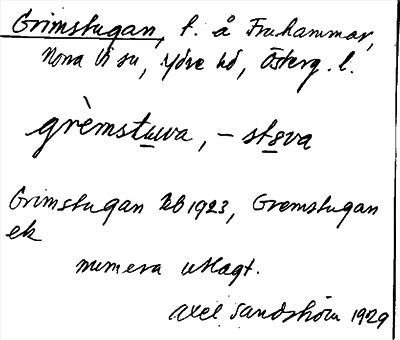 Grimstugan, t. å Fruhammar,
Norra Vi sn, Ydre hd, Österg. l.
grèmstuwa, – stɜva
Grimstugan JEB 1923, Gremstugan
ek
numera utlagt.
Axel Sandström 1929